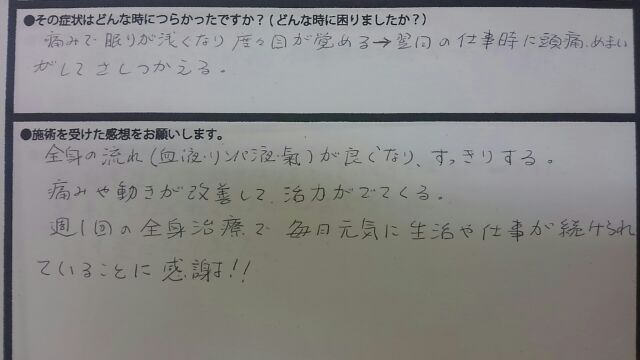 ●その症状はどんな時につらかったですか？(どんな時に困りましたか？)
痛みで眠りが浅くなり度々目が覚める→翌日の仕事時に頭痛、めまい
がしてさしつかえる。
●施術を受けた感想をお願いします。
全身の流れ(血液・リンパ液・氣)が良くなり、すっきりする。
痛みや動きが改善して、活力がでてくる。
週1回の全身治療で毎日元気に生活や仕事が続けられ
ていることに感謝!!